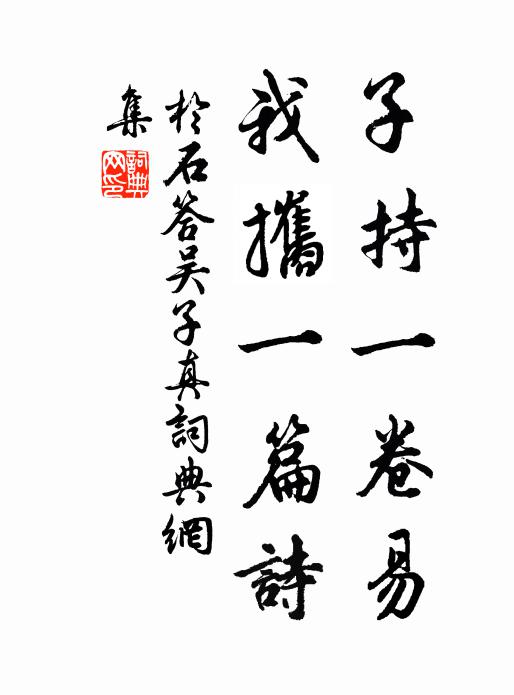 子持一卷易
我攜一篇詩
於石答吴子真詞典網
集
詞典
网印